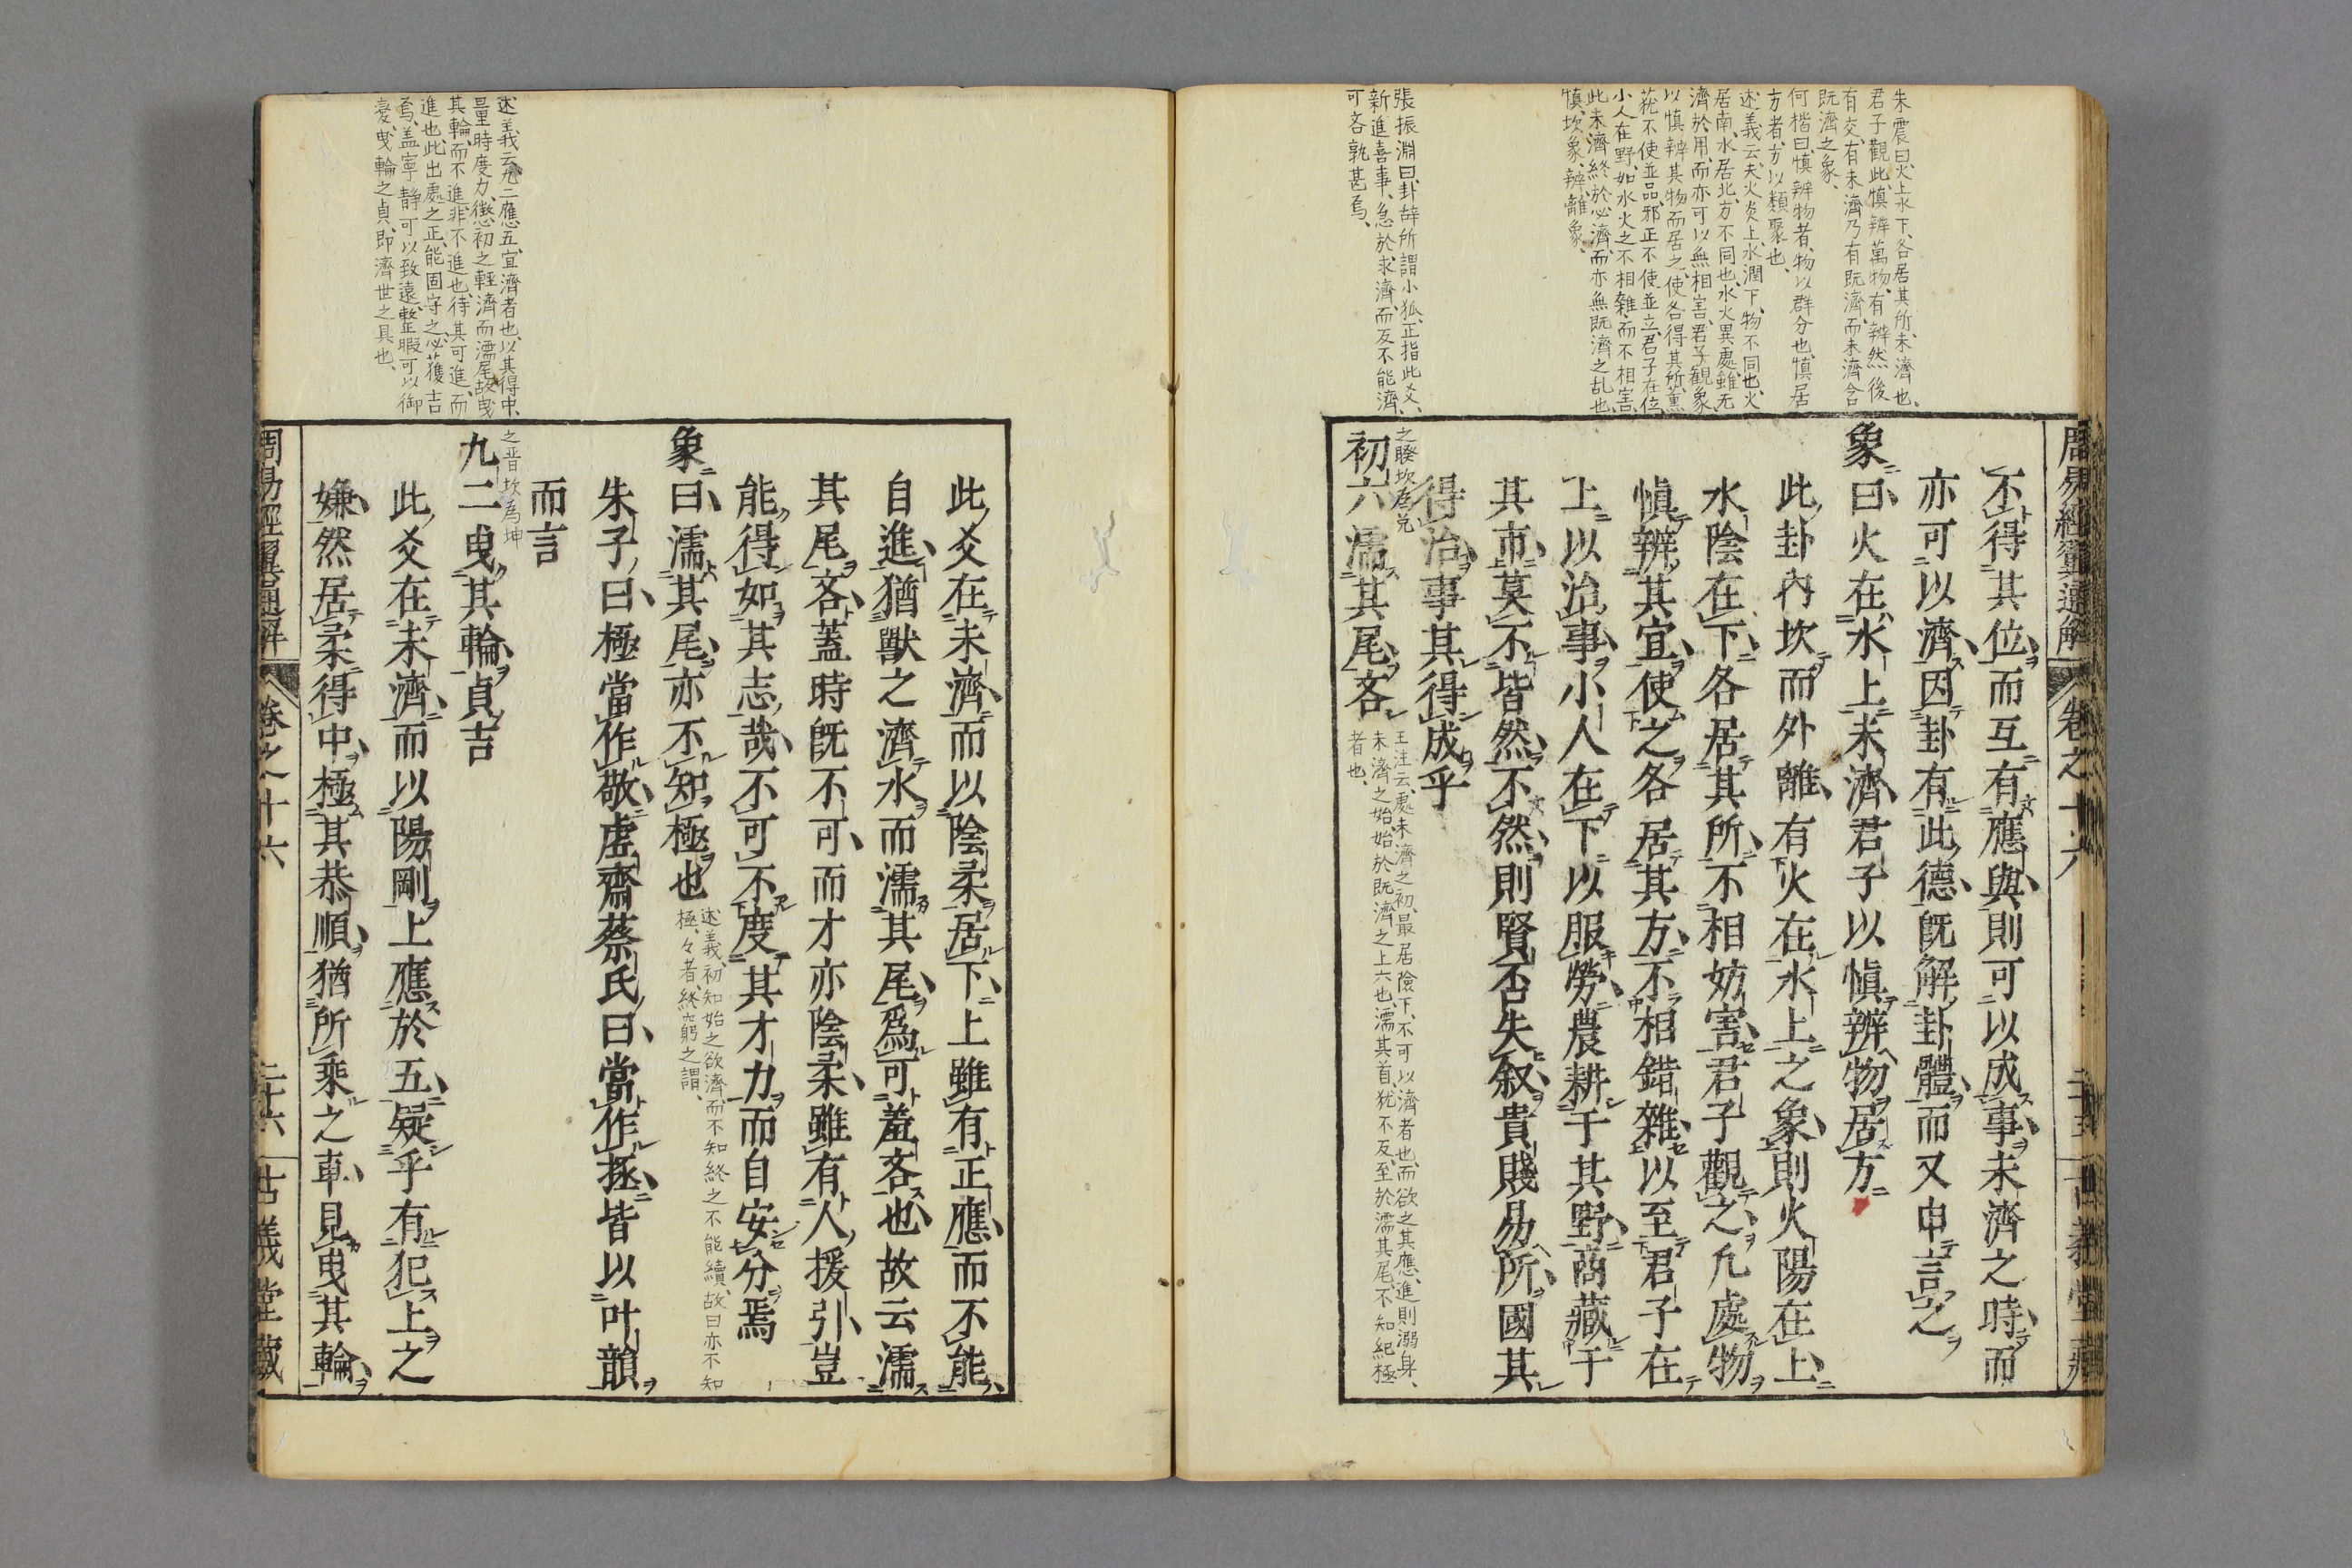 朱震曰火上水下各居其所未濟也
君子觀此愼辨萬物有辨然後
有交有未濟乃有既濟而未濟含
既濟之象
何楷曰愼辨物者物以群分也愼居
方者方以類聚也
述義云夫火炎上水潤下物不同也火
居南水居北方不同也水火異處雖无
濟於用而亦可以無相害君子觀象
以愼辨其物而居之使各得其所薰
蕕不使並品邪正不使並立君子在位
小人在野如水火之不相雜而不相害
此未濟終於必濟而亦無既濟之乱也
愼坎象辨離象
張振淵曰卦辞所謂小狐正指此爻
新進喜事急於求濟而反不能濟
可吝孰甚焉
周易經翼通解 卷之十六 古義堂藏
不得其位而互有應與則可以成事未濟之時而
亦可以濟因卦有此德既解卦體而又申言之
象曰火在水上未濟君子以愼辨物居方
此卦內坎而外離有火在水上之象則火陽在上
水陰在下各居其所不相妨害君子觀之凢處物
愼辨其宜使之各居其方不相錯雜以至君子在
上以治事小人在下以服勞農耕于其野商藏于
其市莫不皆然不然則賢否失叙貴賤易所國其
得治事其得成乎
之睽坎為兌
初六濡其尾吝
王注云處未濟之初最居險下不可以濟者也而欲之其應進則溺身
未濟之始始於既濟之上六也濡其首犹不反至於濡其尾不知紀極
者也
述義云九二應五宜濟者也以其得中
量時度力懲初之輕濟而濡尾故曳
其輪而不進非不進也待其可進而
進也此出處之正能固守之必獲吉
焉盖寧静可以致遠整暇可以御
変曳輪之貞即濟世之具也
此爻在未濟而以陰柔居下上雖有正應而不能
自進猶獸之濟水而濡其尾爲可羞吝也故云濡
其尾吝蓋時既不可而才亦陰柔雖有人援引豈
能得如其志哉不可不度其才力而自安分焉
象曰濡其尾亦不知極也
述義初知始之欲濟而不知終之不能續故曰亦不知
極々者終窮之謂
朱子曰極當作敬虛齋蔡氏曰當作拯皆以叶韻
而言
之晋坎為坤
九二曳其輪貞吉
此爻在未濟而以陽剛上應於五疑乎有犯上之
嫌然居柔得中極其恭順猶所乘之車見曳其輪
周易經翼通解 卷之十六 二十六 古義堂藏